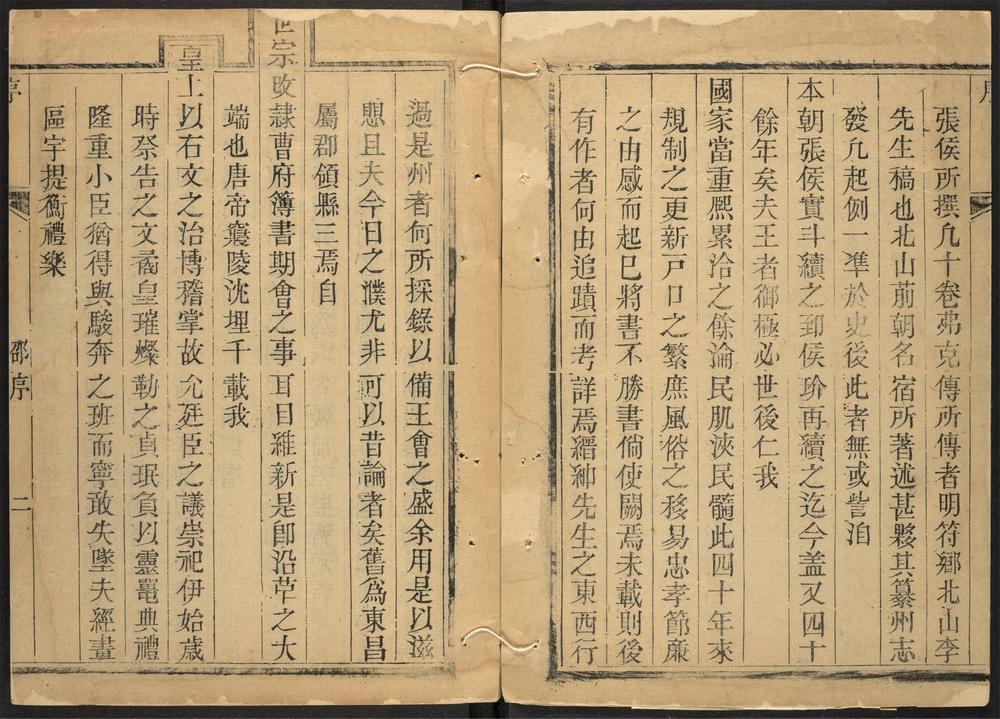 序
張侯所撰凢十卷弗克傳所傳者明符鄉北山李
先生稿也北山前朝名宿所著述甚夥其纂州志
發凢起例一準於史後此者無或訾洎
本朝張侯實斗續之郅侯玠再續之迄今盖又四十
餘年矣夫王者御極必世後仁我
國家當重熙累洽之餘淪民肌浹民髓此四十年來
規制之更新戸口之繁庶風俗之移易忠孝節廉
之由感而起巳將書不勝書倘使闕焉未載則後
有作者何由追蹟而考詳焉縉紳先生之東西行
過是州者何所採錄以備王會之盛余用是以滋
懼且夫今日之濮尤非可以昔論者矣舊爲東昌
屬郡領縣三焉自
世宗改隷曹府簿書期會之事耳目維新是卽沿革之大
端也唐帝寢陵沈埋千載我
皇上以右文之治博稽掌故允廷臣之議崇祀伊始歳
時祭告之文矞皇璀燦勒之貞珉負以靈鼉典禮
隆重小臣猶得與駿奔之班而寧敢失墜夫經畫
區宇提衡禮樂
序
邵序
二